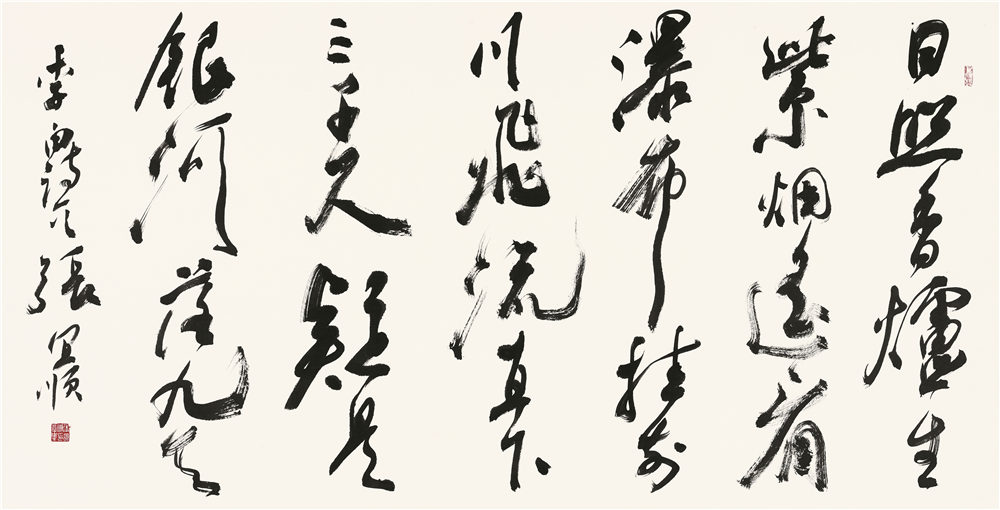 日照香爐生
紫烟遙看
瀑布挂前
川飛流直下
三千尺疑是
銀河落九天
李白詩 張 順